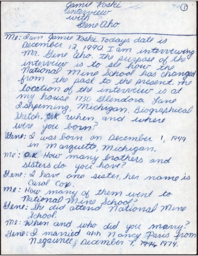 Jamie Koski
interview
with
Gene Aho
Me: I am Jamie Koski Todays date is
December 12, 1990 I am interviewing
Mr. Gene Aho The purpose of the
interview is to see how the
National Mine School has changed
from the past to the present The
location of the interview is at
my house 112 Glendora Lane
Ishpeming, Michigan. Biographical
Sketch. When, and where
were you born?
Gene: I was born on December 1, 1949
in Marquette Michigan.
Me: How many brothers and
sisters do you have?
Gene: I have one sister, her name is
Carol
Me: How many of them went to
National Mine School?
Gene: She did attend National Mine
School.
Me: When and who did you marry?
Gene: I married Ann Nancy from
Negaunee, December 7, 1974.